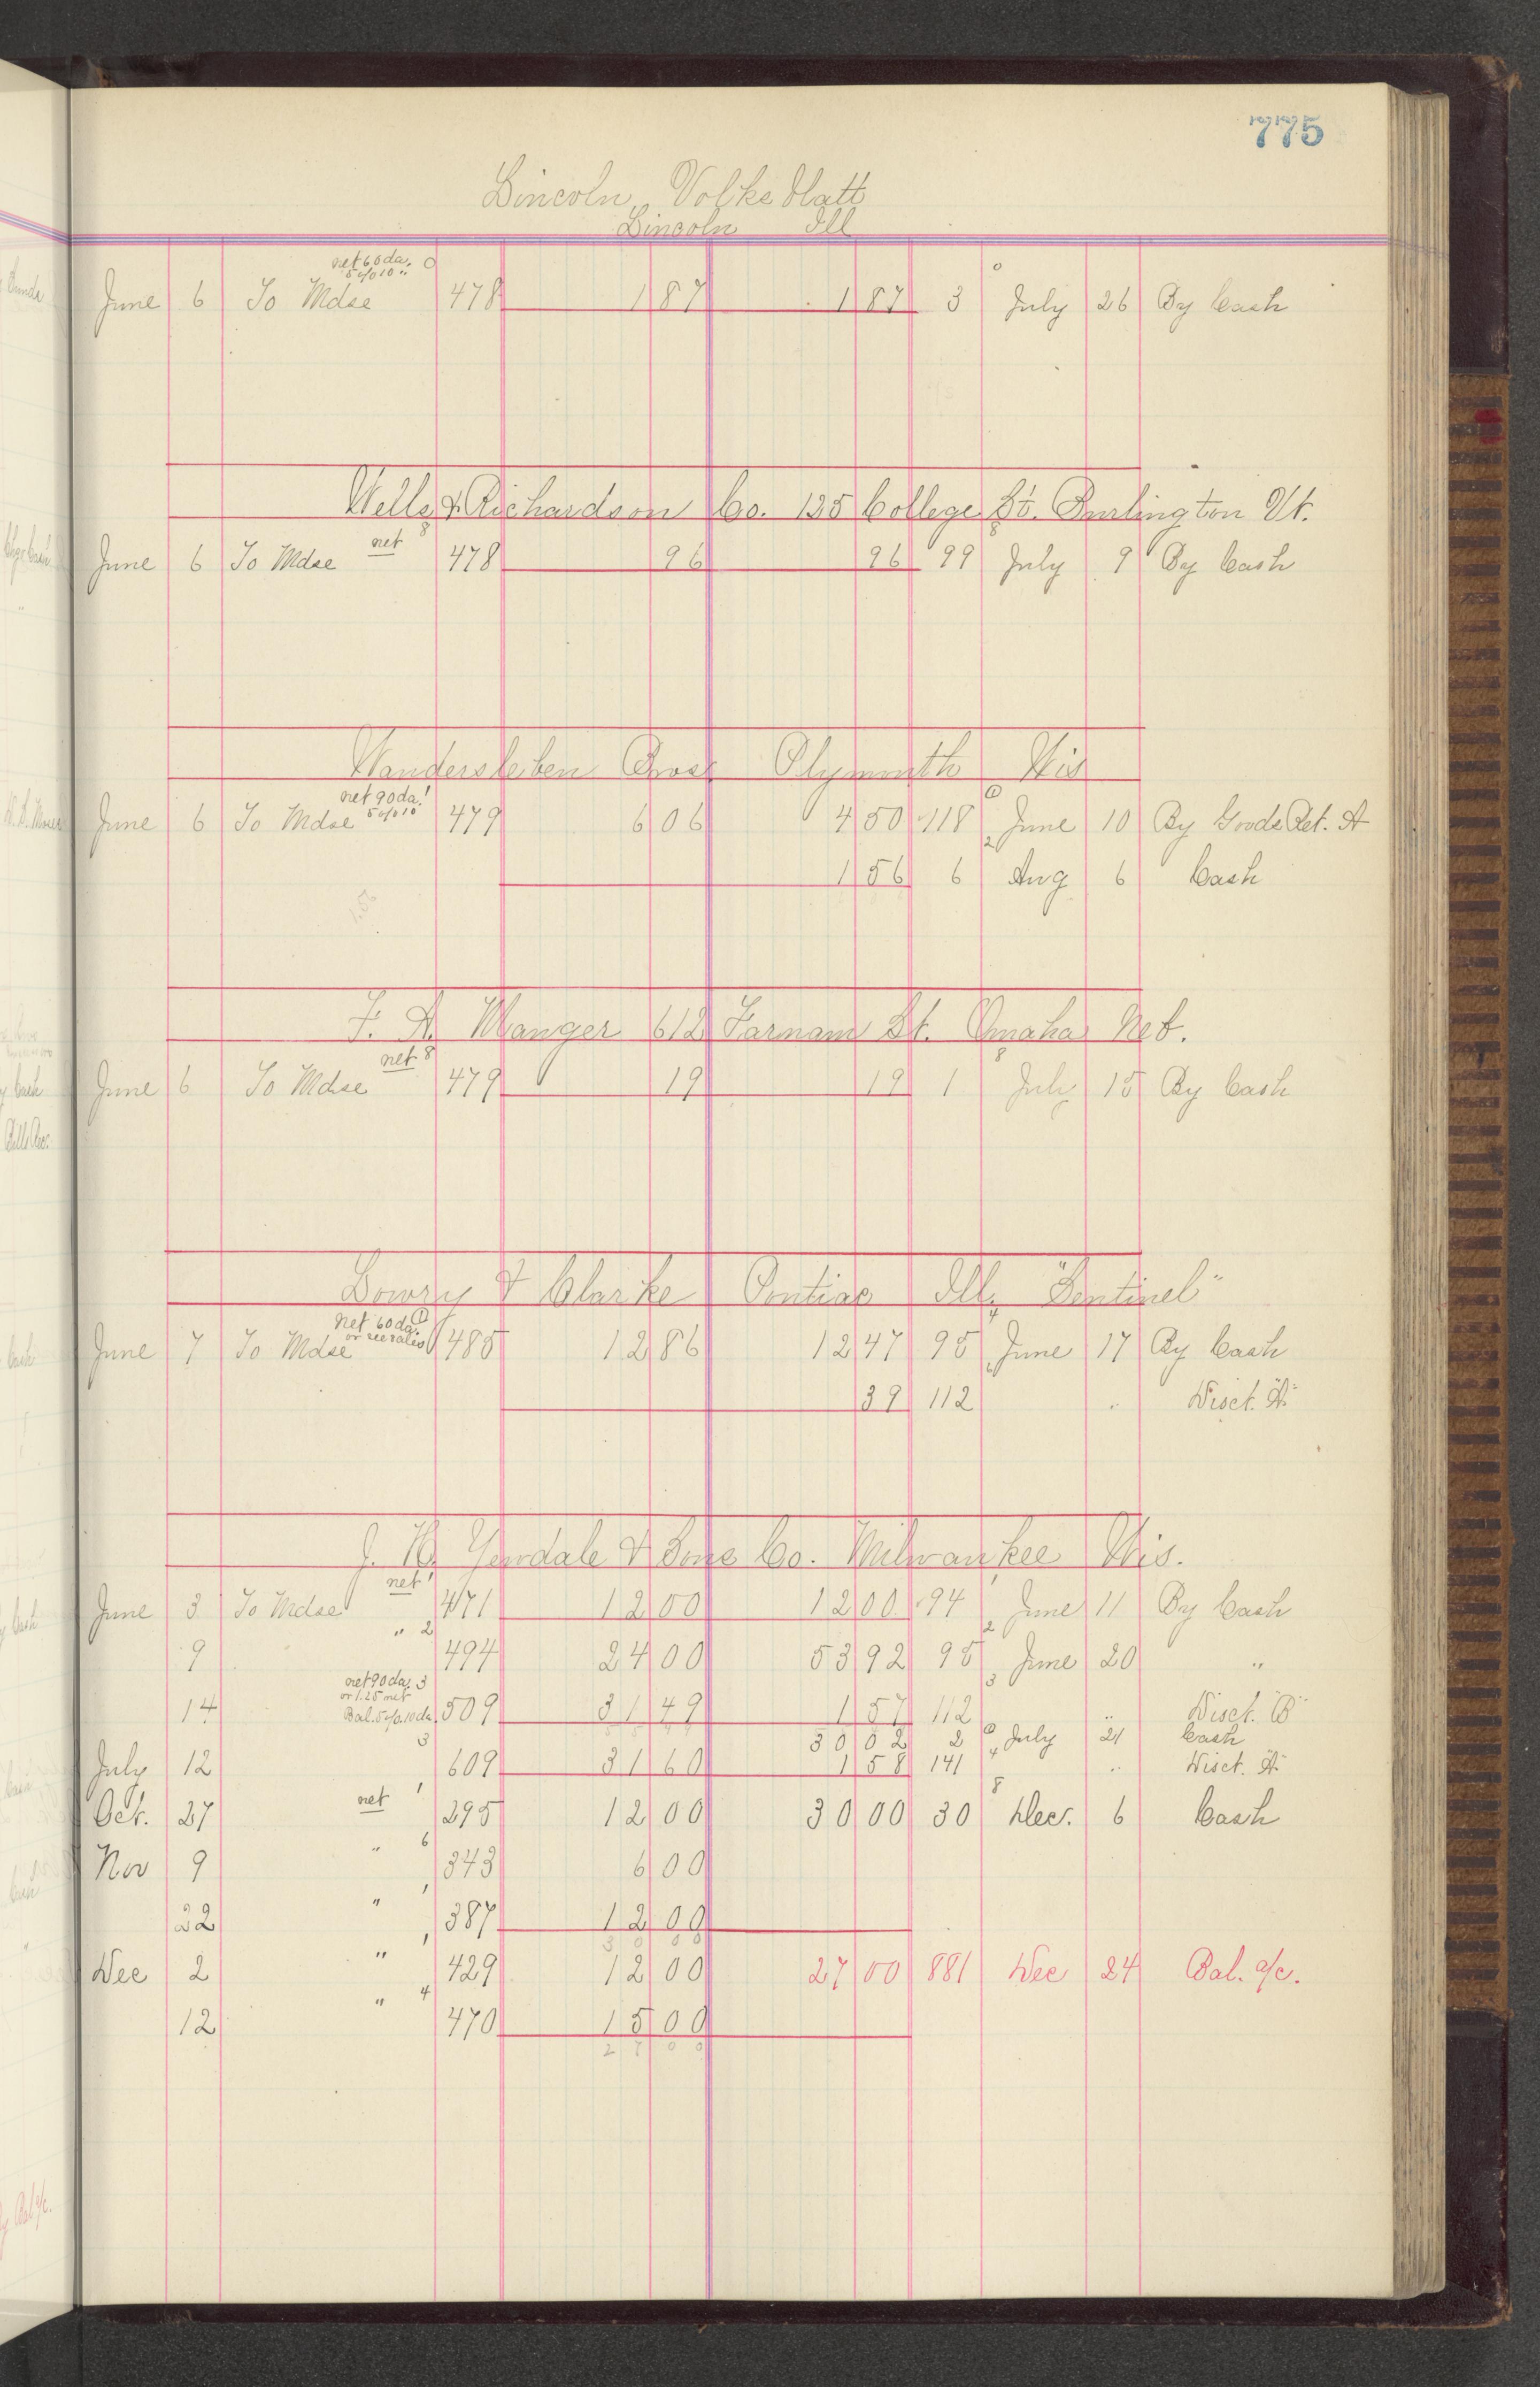 775
Lincoln Volksblatt
Lincoln Ill
net 60 da.
5% 10 "
June 6 To Mdse 478 1 87 1 87 3 July 26 By Cash
Wells & Richardson Co. 125 College St. Burlington Vt.
net
June 6 To Mdse 478 96 96 99 July 9 By Cash
Wandersleben Bros Plymouth Wis
net 90 da.
5% 10
June 6 To Mdse 479 6 06 4 50 118 June 10 By Goods Ret. A
1 56 6 Aug 6 Cash
1.56
F. A. Manger 612 Farnam St. Omaha Neb.
net
June 6 To Mdse 479 19 19 1 July 15 By Cash
Lowry & Clarke Pontiac Ill. "Sentinel"
Net 60 da.
June 7 To Mdse 485 12 86 12 47 95 June 17 By Cash
39 112 " Disct. "A"
J. H. Yewdale & Sons Co. Milwaukee Wis.
net
June 3 To Mdse 471 12 00 12 00 94 June 11 By Cash
9 " 494 24 00 53 92 95 June 20 "
net 90 da.
or 1.25 net
Bal. 5% 10 da.
14 509 31 49 1 57 112 " Disct. "B"
30 02 2 July 21 Cash
July 12 609 31 60 1 58 141 " Disct. "A"
Oct. 27 net 295 12 00 30 00 30 Dec. 6 Cash
Nov 9 " 343 6 00
22 " 387 12 00
3 0 0 0
Dec 2 " 429 12 00 27 00 881 Dec 24 Bal. a/c.
12 " 470 15 00
2 7 0 0